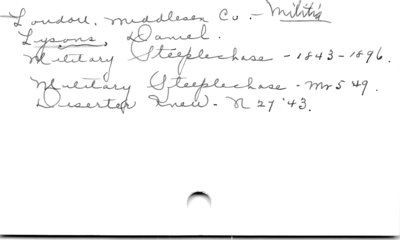 London, Middlesex Co. - Militia
Lysons, Daniel.
Military Steeplechase - 1843-1896.
Military Steeplechase - Mr 5 '49.
Deserter Knew - N 27 '43.